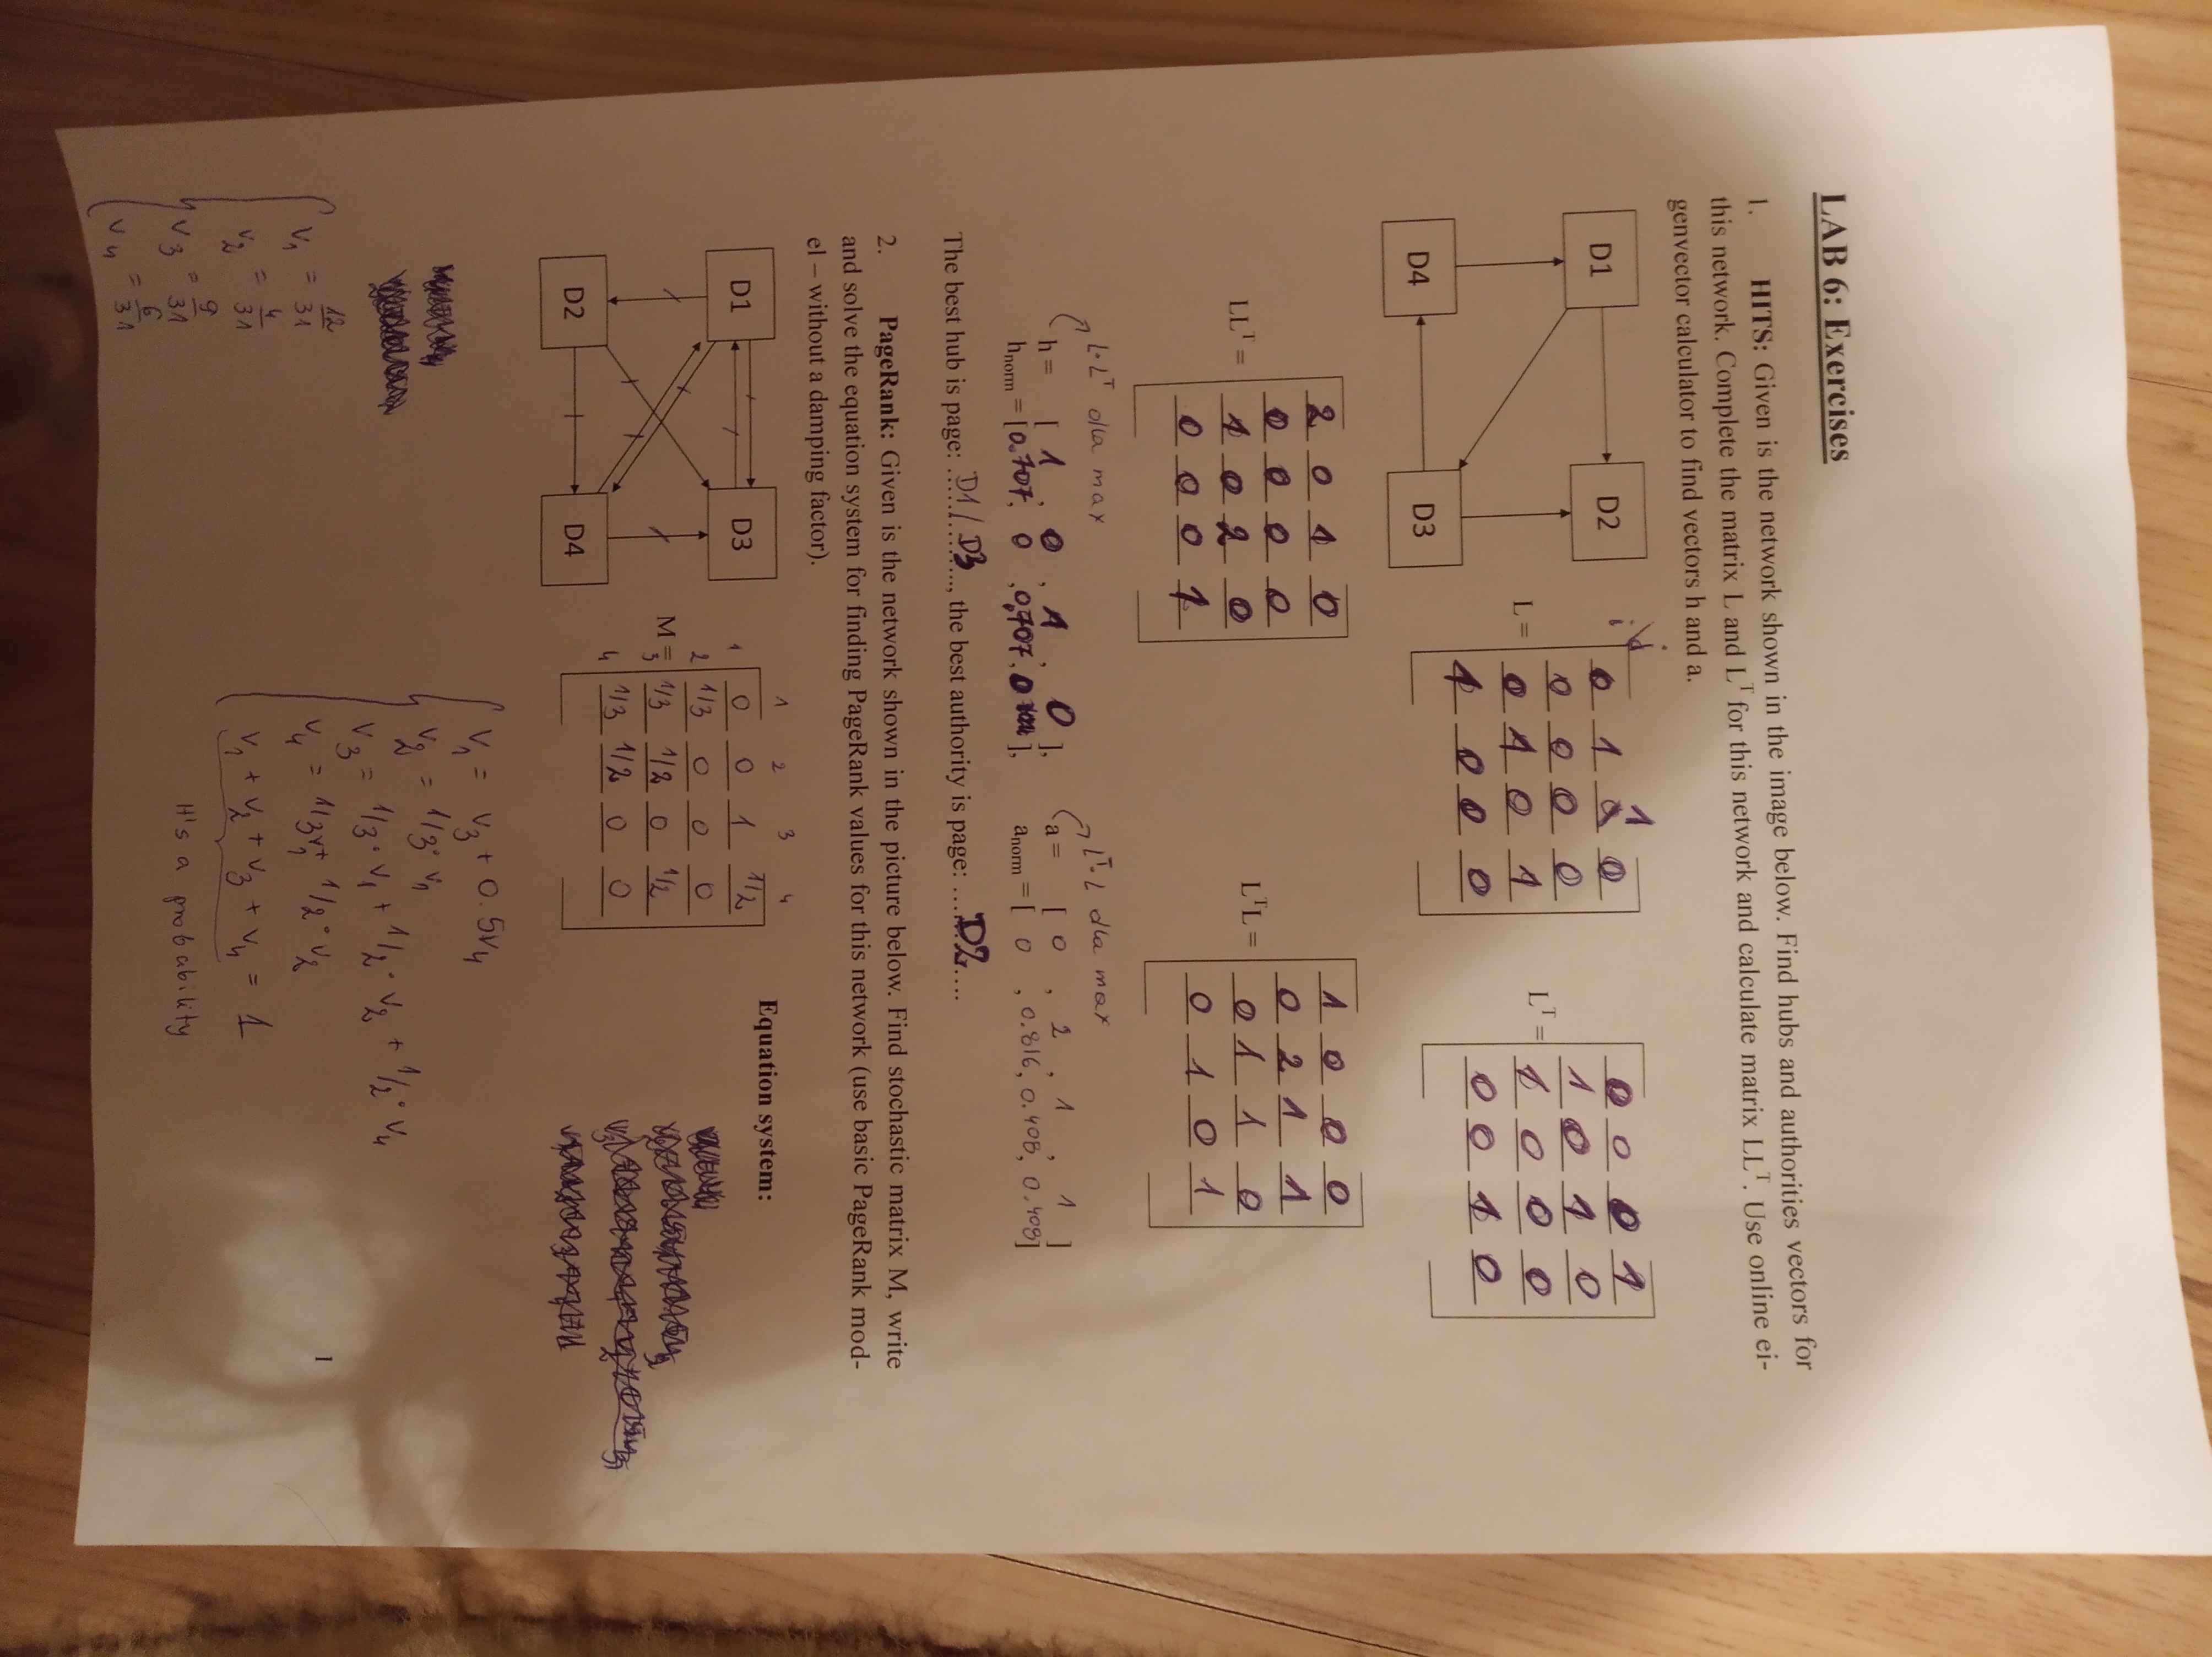 LAB 6: Exercises
1. HITS: Given is the network shown in the image below. Find hubs and authorities vectors for
this network. Complete the matrix L and L^T for this network and calculate matrix LL^T. Use online ei-
genvector calculator to find vectors h and a.
D1 D2
D4 D3
i j
1
L =
0 1 0
0 0 0 0
0 1 0 1
1 0 0 0
L^T =
0 0 0 1
1 0 1 0
1 0 0 0
0 0 1 0
LL^T =
2 0 1 0
0 0 0 0
1 0 2 0
0 0 0 1
L^TL =
1 0 0 0
0 2 1 1
0 1 1 0
0 1 0 1
L·L^T dla max
h = [ 1 , 0 , 1 , 0 ],
h_norm = [0.707, 0 , 0,707, 0 ],
L^T·L dla max
a = [ 0 , 2 , 1 , 1 ]
a_norm = [ 0 , 0.816, 0.408, 0.408]
The best hub is page: D1/D3, the best authority is page: D2
2. PageRank: Given is the network shown in the picture below. Find stochastic matrix M, write
and solve the equation system for finding PageRank values for this network (use basic PageRank mod-
el – without a damping factor).
D1 D3
D2 D4
M =
1 2 3 4
1 0 0 1 1/2
2 1/3 0 0 0
3 1/3 1/2 0 1/2
4 1/3 1/2 0 0
Equation system:
v1 = v3 + 0.5v4
v2 = 1/3· v1
v3 = 1/3· v1 + 1/2· v2 + 1/2· v4
v4 = 1/3v1+ 1/2· v2
v1 + v2 + v3 + v4 = 1
It's a probability
v1 = 12/31
v2 = 4/31
v3 = 9/31
v4 = 6/31
1